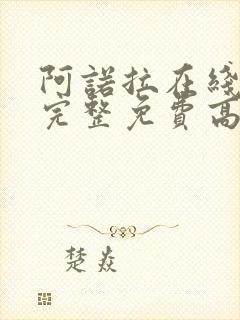 阿諾拉在綫
完整免費高
楚焱